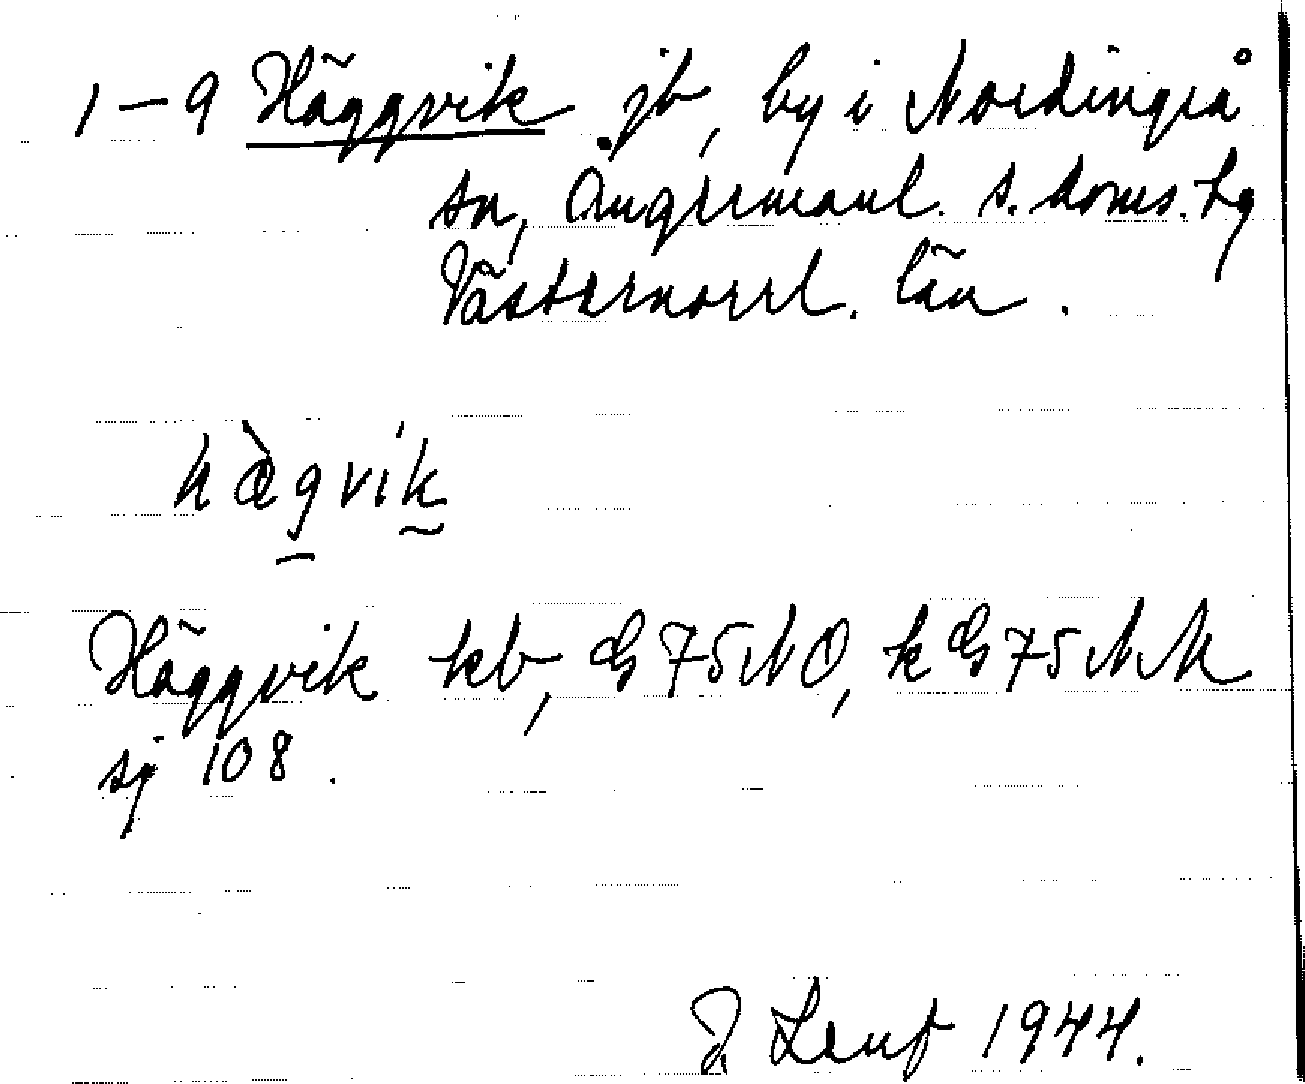 1–9 Häggvik jb, by i Nordingrå
sn, Ångermanl. s. doms. tg
Västernorrl. län.
hàgvik
Häggvik kb, G 75 NO, k G 75 NN
sj 108.
1944.